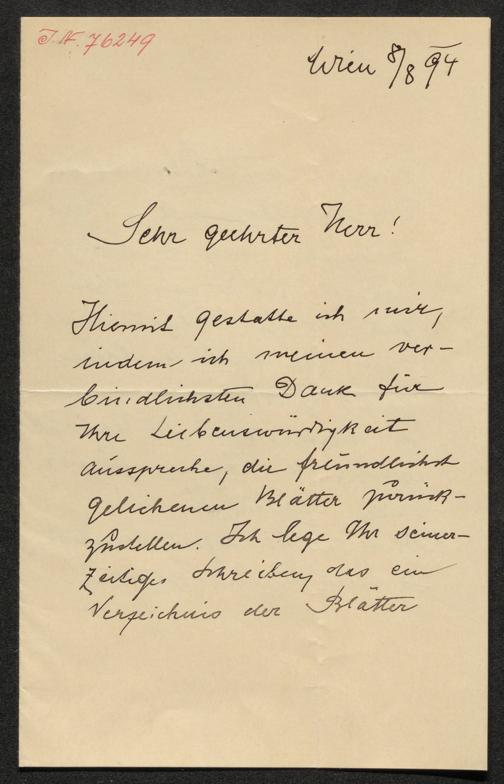 I.N. 76249
Wien 8/8 94
Sehr geehrter Herr!
Hiemit gestatte ich mir,
indem ich meinen ver-
bindlichsten Dank für
Ihre Liebenswürdigkeit
ausspreche, die freundlichst
geliehenen Blätter zurück-
zustellen. Ich lege Ihr seiner-
zeitiges Schreiben, das ein
Verzeichnis der Blätter